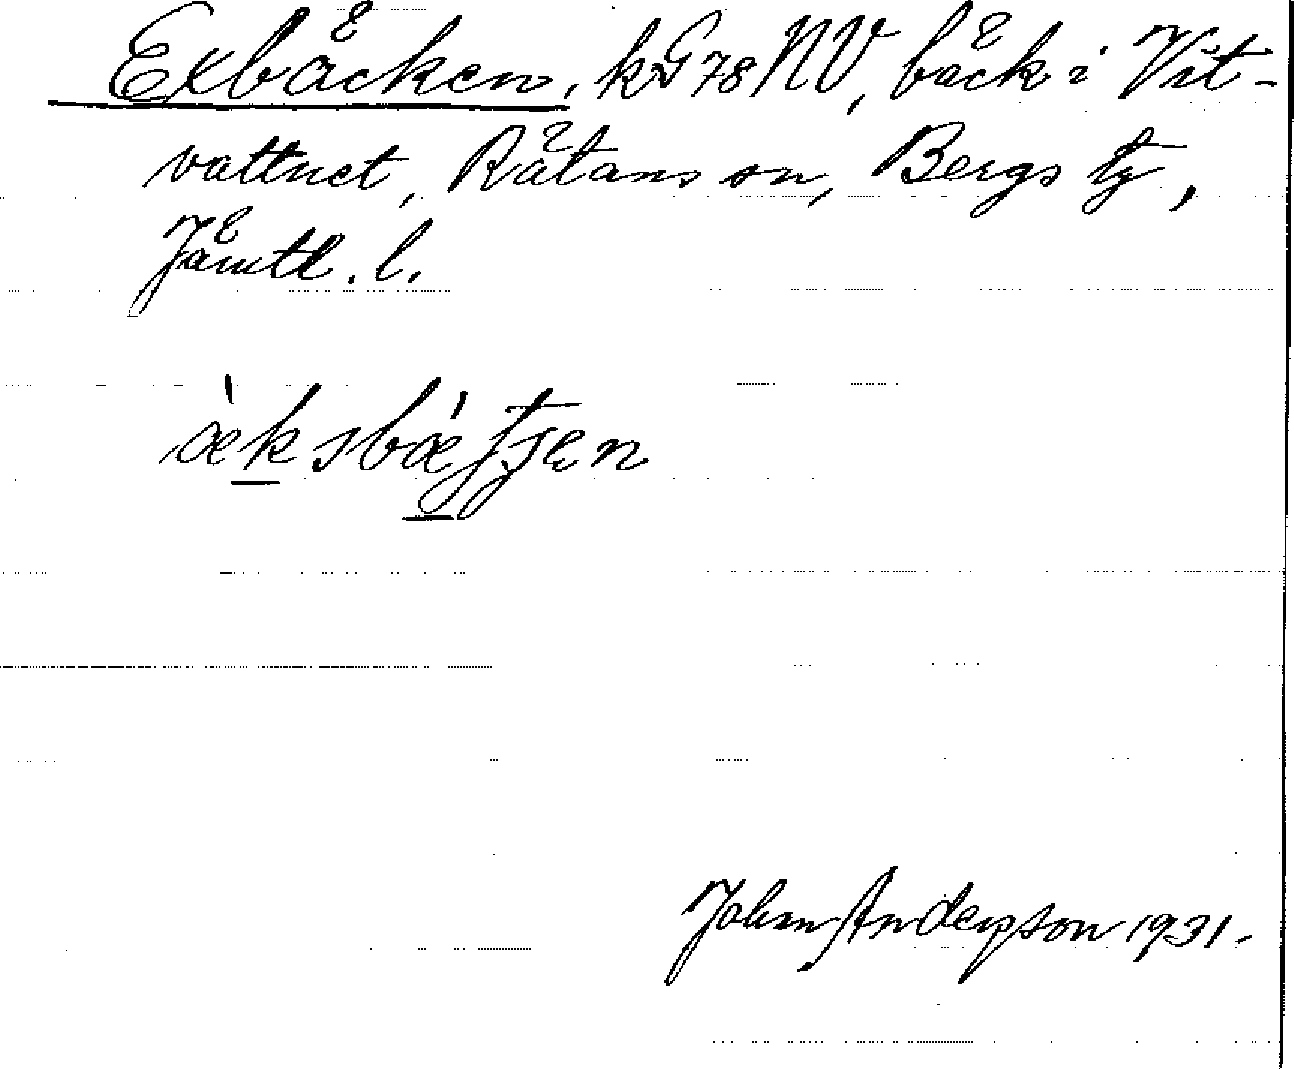 Exbäcken, kG78NV, bäck i Vit-
vattnet, Rätans sn, Bergs tg,
Jämtl. l.
Johan Anderson 1931.